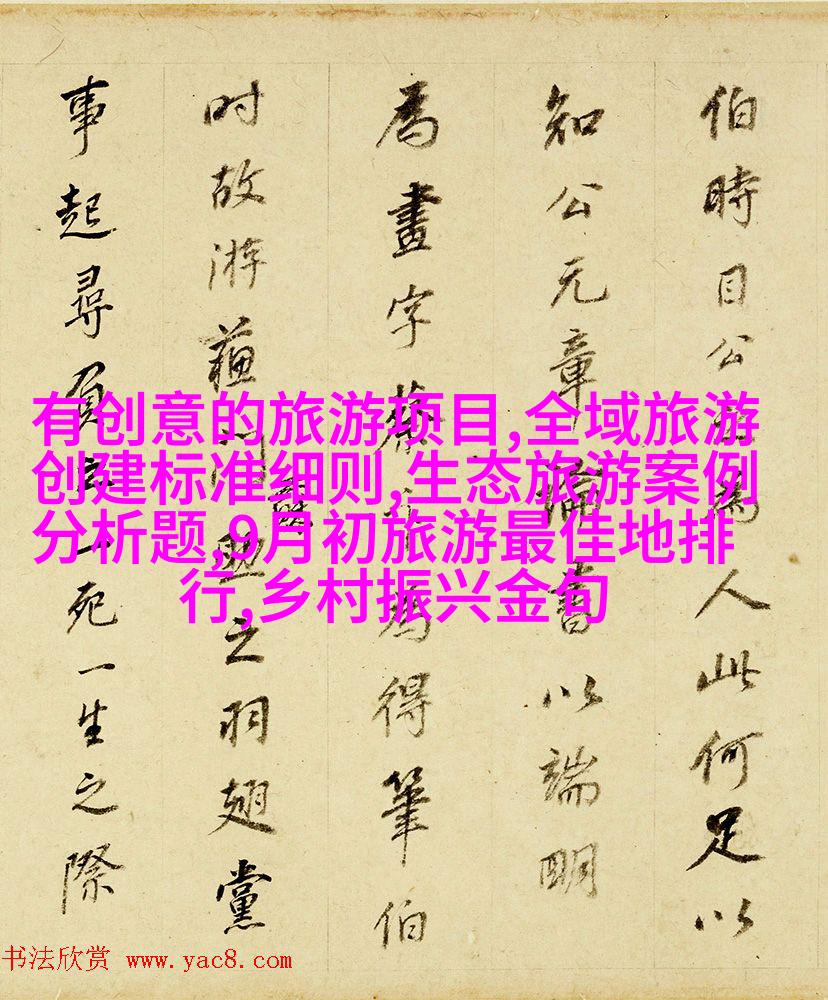 伯時目公為人此何足以
知公元章論書以端明
為畫字蔡為得筆伯
时故游蘇門助之羽翅黨
事起尋負一死一生之際
有创意的旅游项目,全域旅游
创建标准细则,生态旅游案例
分析题,9月初旅游最佳地排
行,乡村振兴金句
书法欣赏 www.yac8.com